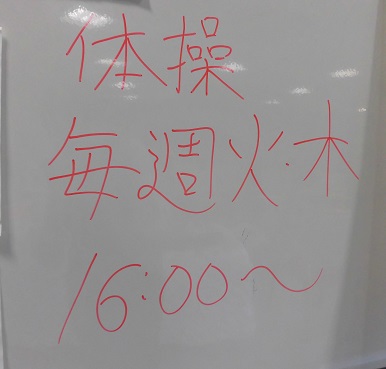 体操
毎週火・木
16:00～